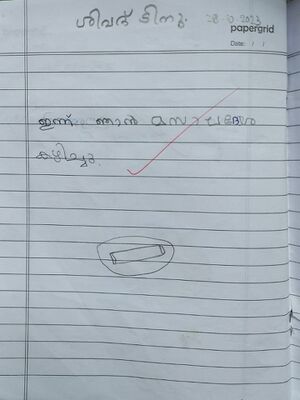 ശിവദ ടിനു. 28-10-2023
papergrid
Date: / /
ഇന്ന് ഞാൻ മസാലദോശ
കഴിച്ചു.